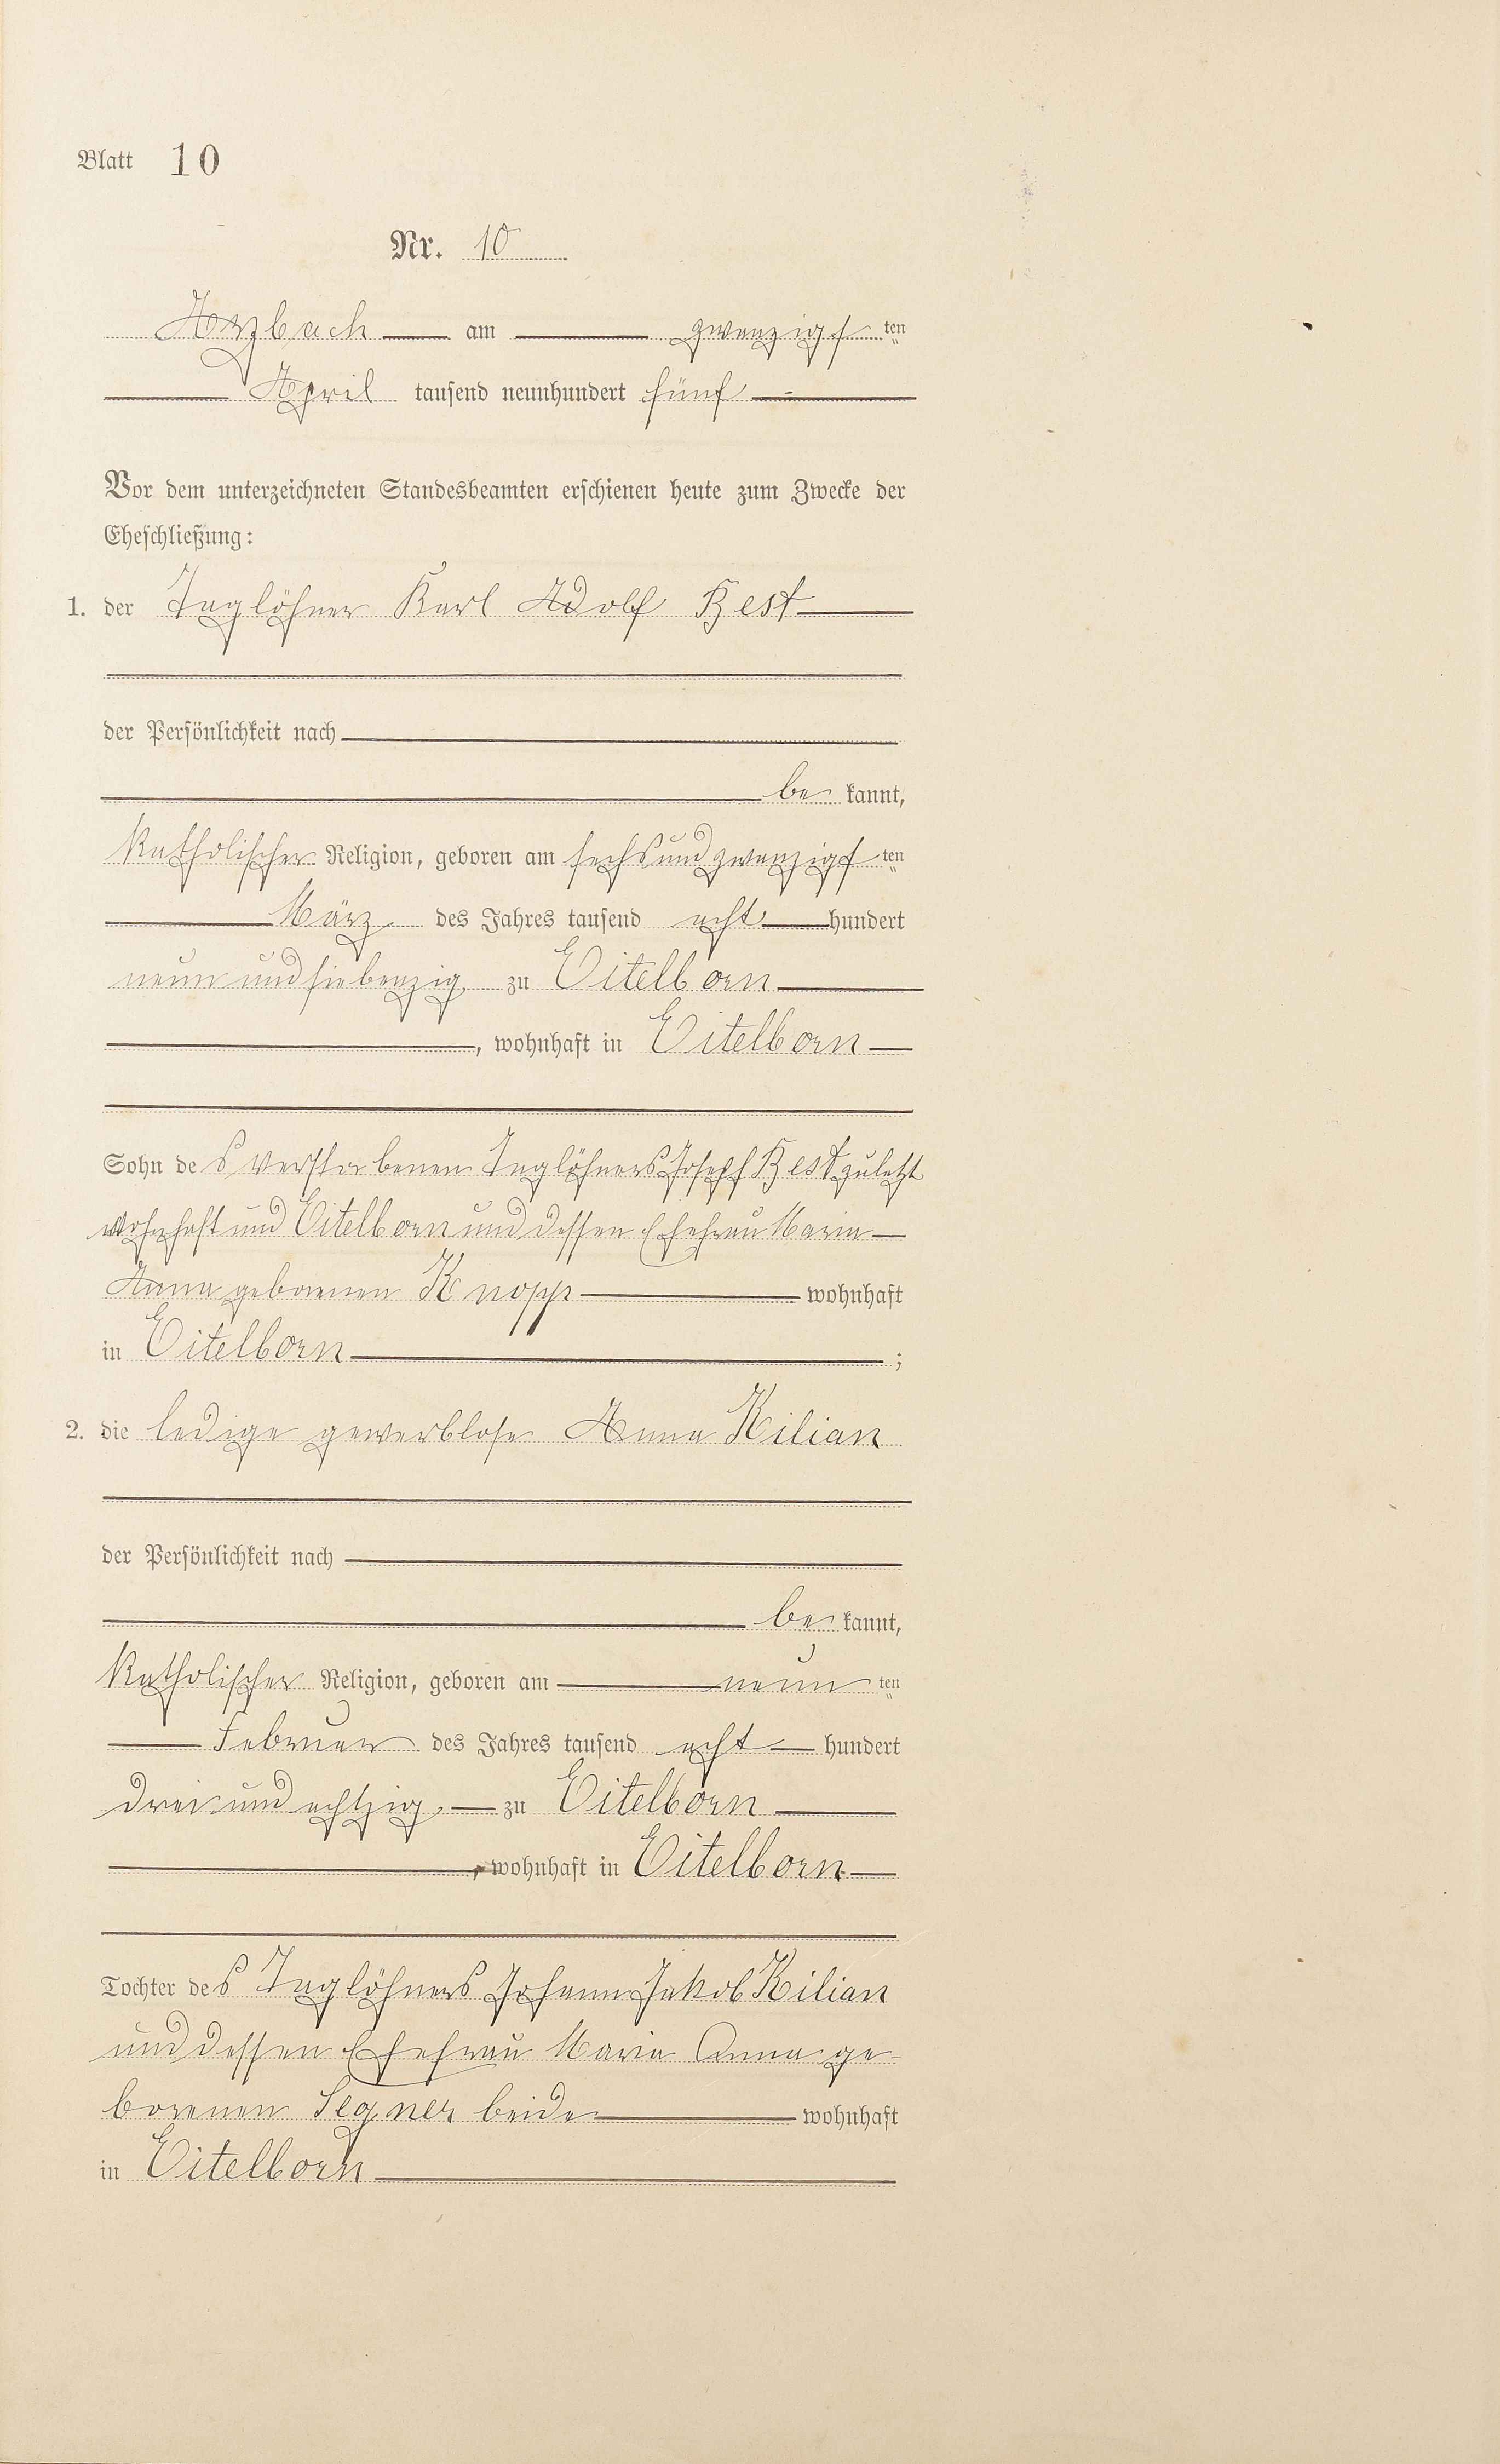 Blatt 10
Nr. 10
Arzbach am zwanzigsten
April tausend neunhundert fünf
Vor dem unterzeichneten Standesbeamten erschienen heute zum Zwecke der
Eheschließung:
1. der Taglöhner Karl Adolf Best
der Persönlichkeit nach
be kannt,
katholischer Religion, geboren am sechsundzwanzigsten
März des Jahres tausend acht hundert
neun und siebenzig zu Eitelborn
, wohnhaft in Eitelborn
Sohn des verstorbenen Taglöhners Joseph Best zuletzt
wohnhaft und Eitelborn und dessen Ehefrau Maria
Anna geborenen Knopp wohnhaft
in Eitelborn ;
2. die ledige gewerblose Anna Kilian
der Persönlichkeit nach
be kannt,
katholischer Religion, geboren am neun ten
Februar des Jahres tausend acht hundert
drei und achtzig zu Eitelborn
, wohnhaft in Eitelborn
Tochter des Taglöhners Johann Jakob Kilian
und dessen Ehefrau Maria Anna ge-
borenen Segner beide wohnhaft
in Eitelborn